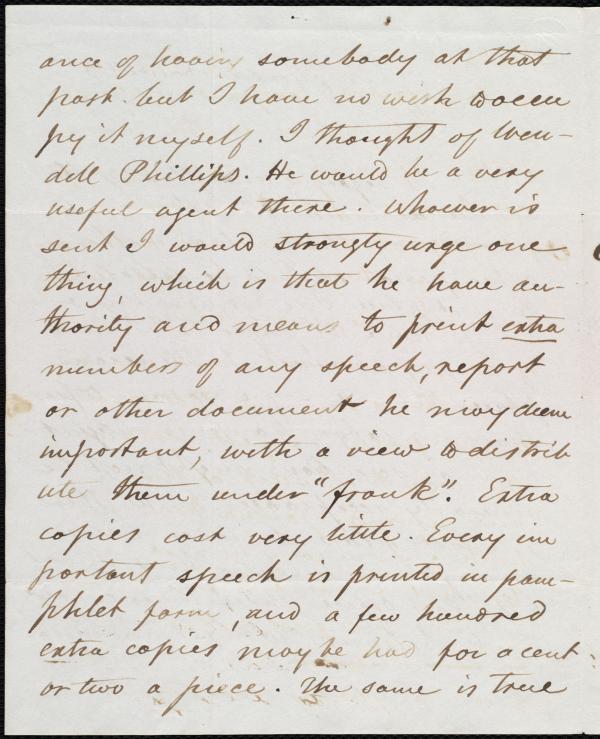 ance of having somebody at that
post. but I have no wish to occu
py it myself. I thought of Wen-
dell Phillips. He would be a very
useful agent there. Whoever is
sent I would strongly urge one
thing, which is that he have au-
thority and means to print extra
numbers of any speech, report
or other document he may deem
important, with a view to distrib
ute them under "frank". Extra
copies cost very little. Every im
portant speech is printed in pam-
phlet form, and a few hundred
extra copies may be had for a cent
or two a piece. The same is true